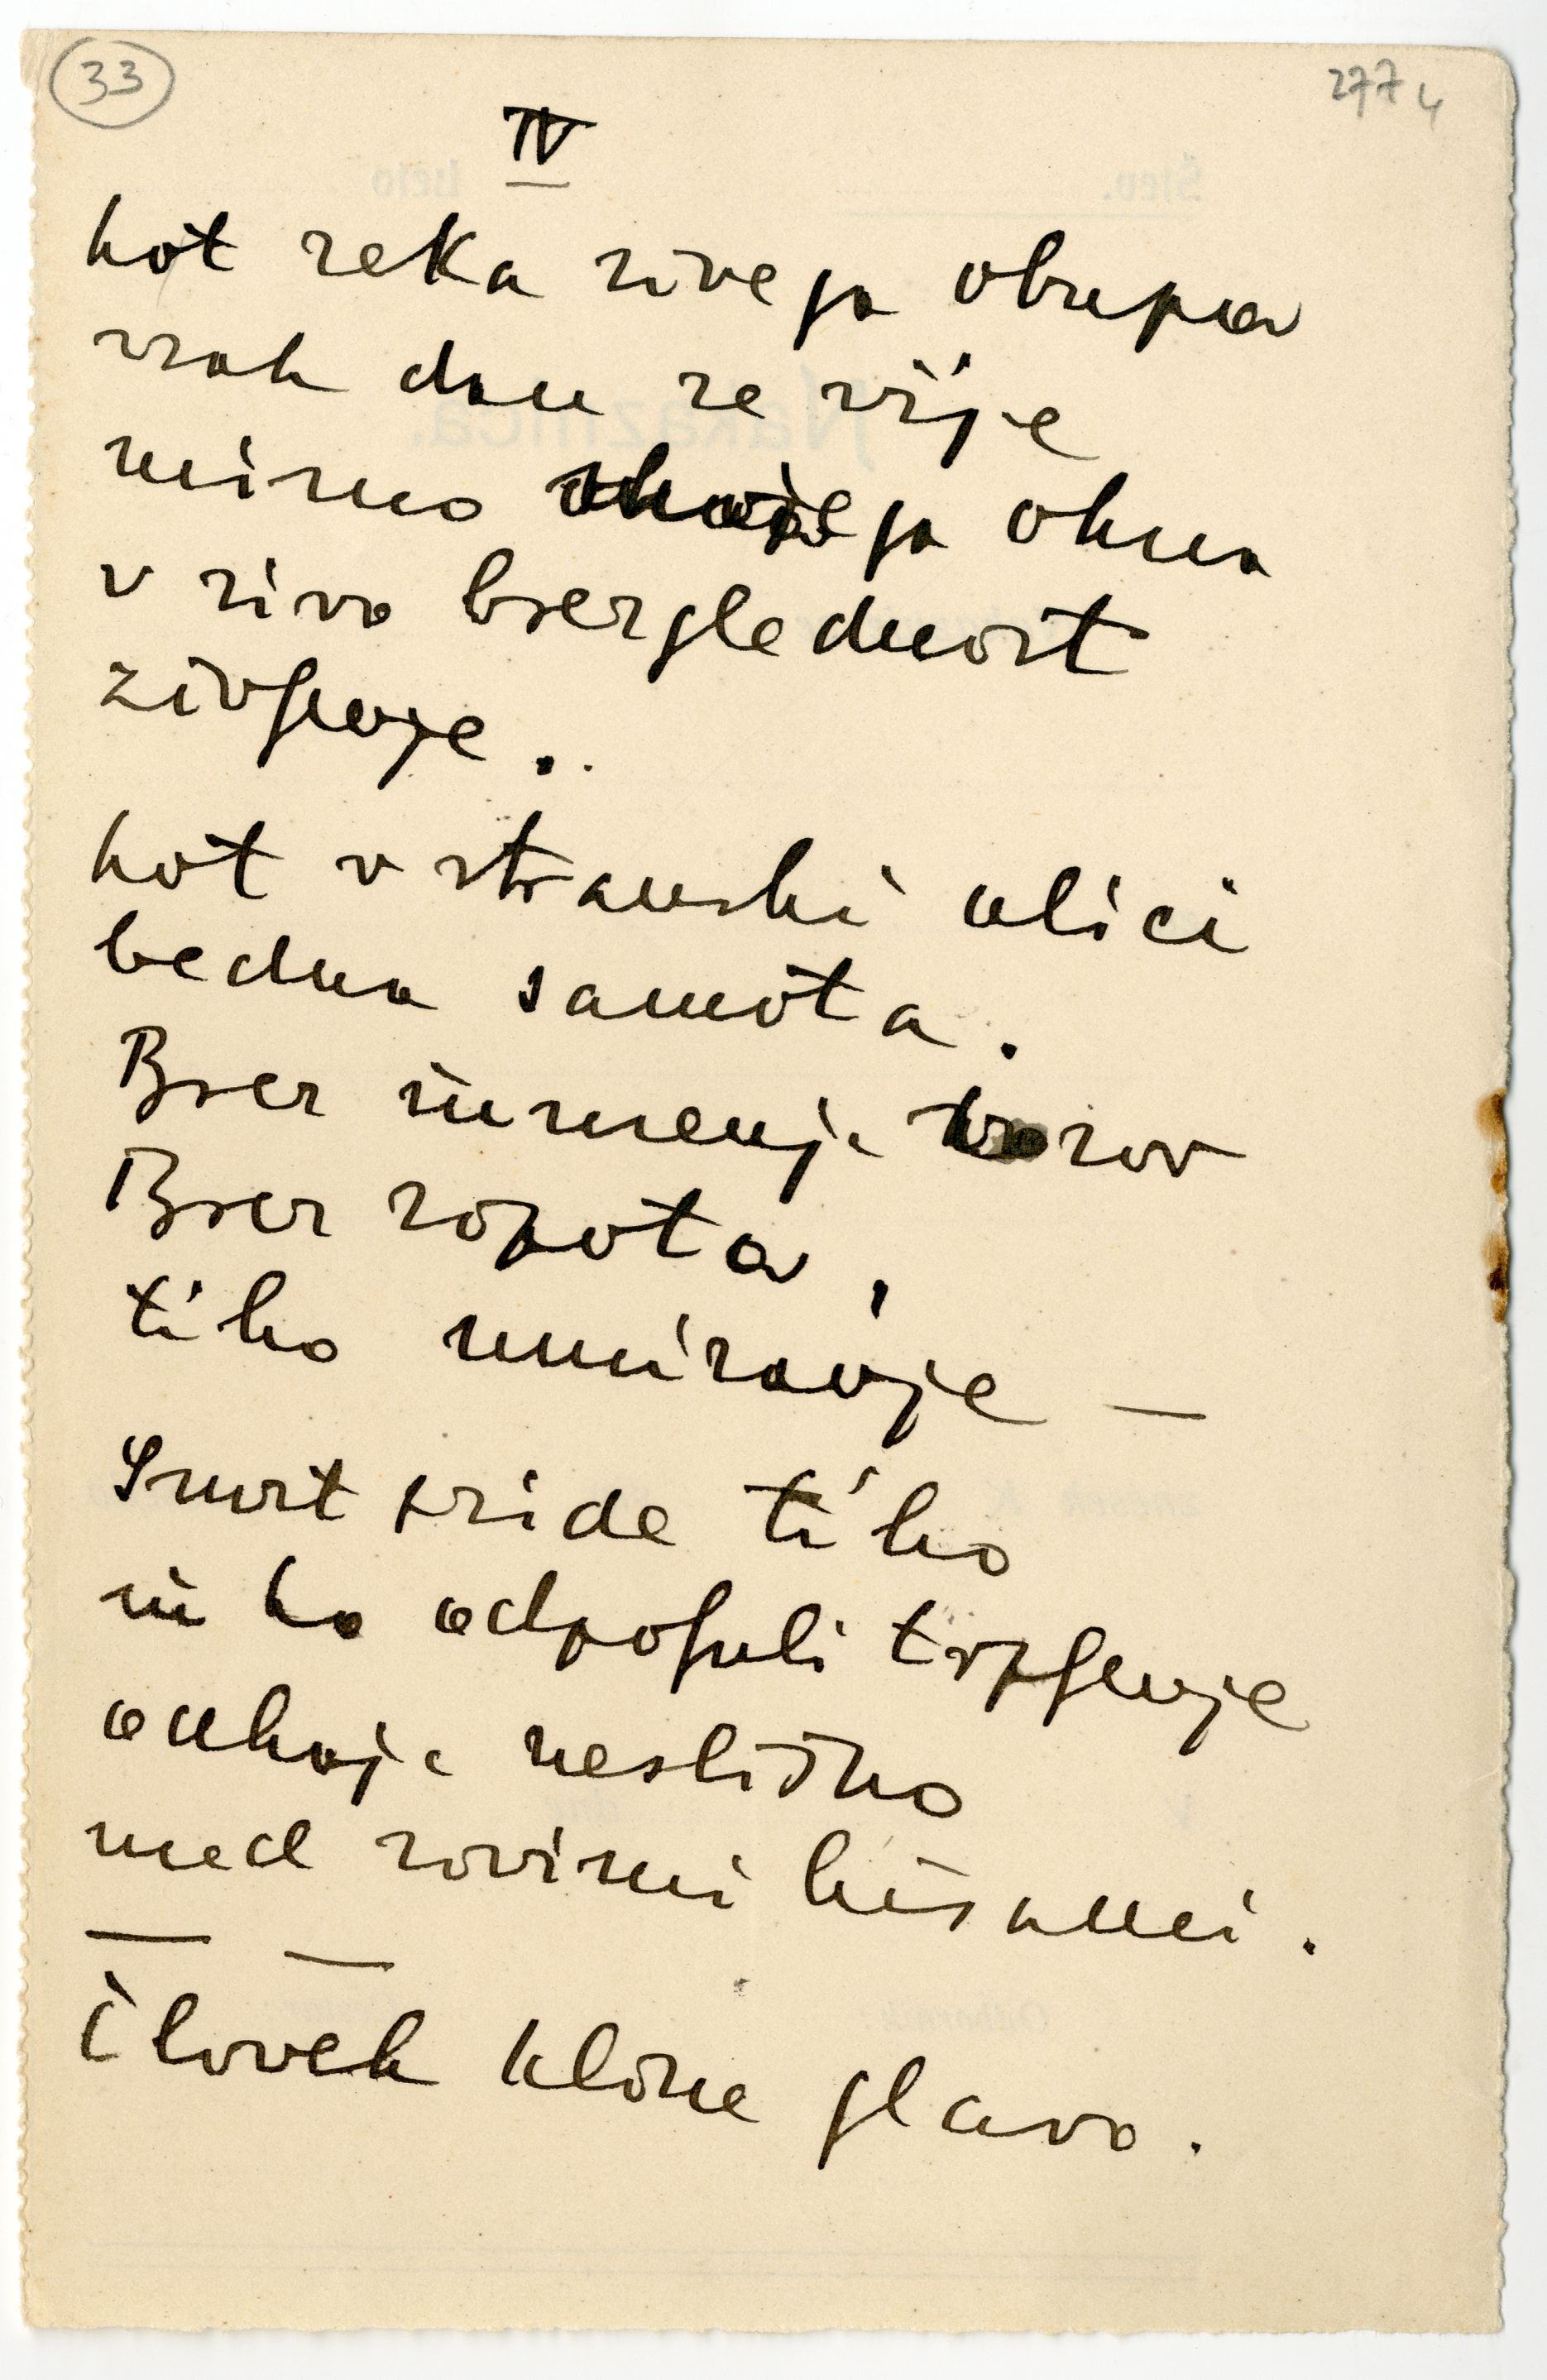 33
277 4
IV
kot reka sivega obupa
vsak dan se vije
mimo okna
v sivo brezglednost
življenje.
kot v stranski ulici
bedna samota.
Brez šumenja vozov
Brez ropota,
tiho umiranje —
Smrt pride tiho
in ko odpoljubi trpljenje
odhaja neslišno
med sivimi hišami.
— —
Človek klone glavo.